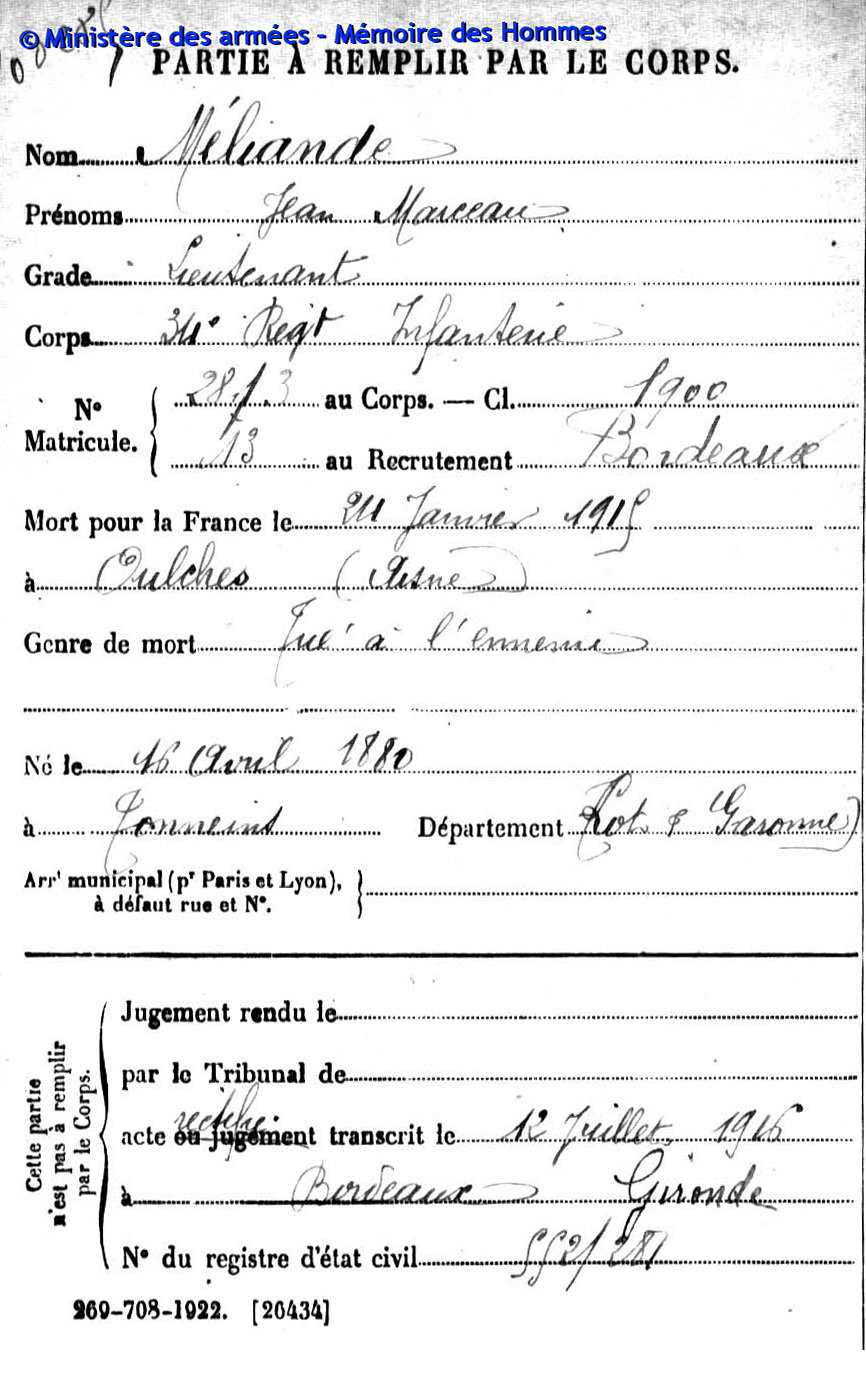 © Ministère des armées - Mémoire des Hommes
PARTIE À REMPLIR PAR LE CORPS.
Nom Méliande
Prénoms Jean Marceau
Grade Lieutenant
Corps 34e Régt Infanterie
N° Matricule. 2813 au Corps. — Cl. 1900
13 au Recrutement Bordeaux
Mort pour la France le 24 Janvier 1915
à Oulches (Aisne)
Genre de mort Tué à l'ennemi
Né le 16 Avril 1880
à Tonneins Département Lot & Garonne
Arrt municipal (pr Paris et Lyon),
à défaut rue et N°.
Cette partie n'est pas à remplir par le Corps.
Jugement rendu le
par le Tribunal de
rectifié
acte ou jugement transcrit le 12 Juillet 1916
à Bordeaux Gironde
N° du registre d'état civil
269-708-1922. [26434]